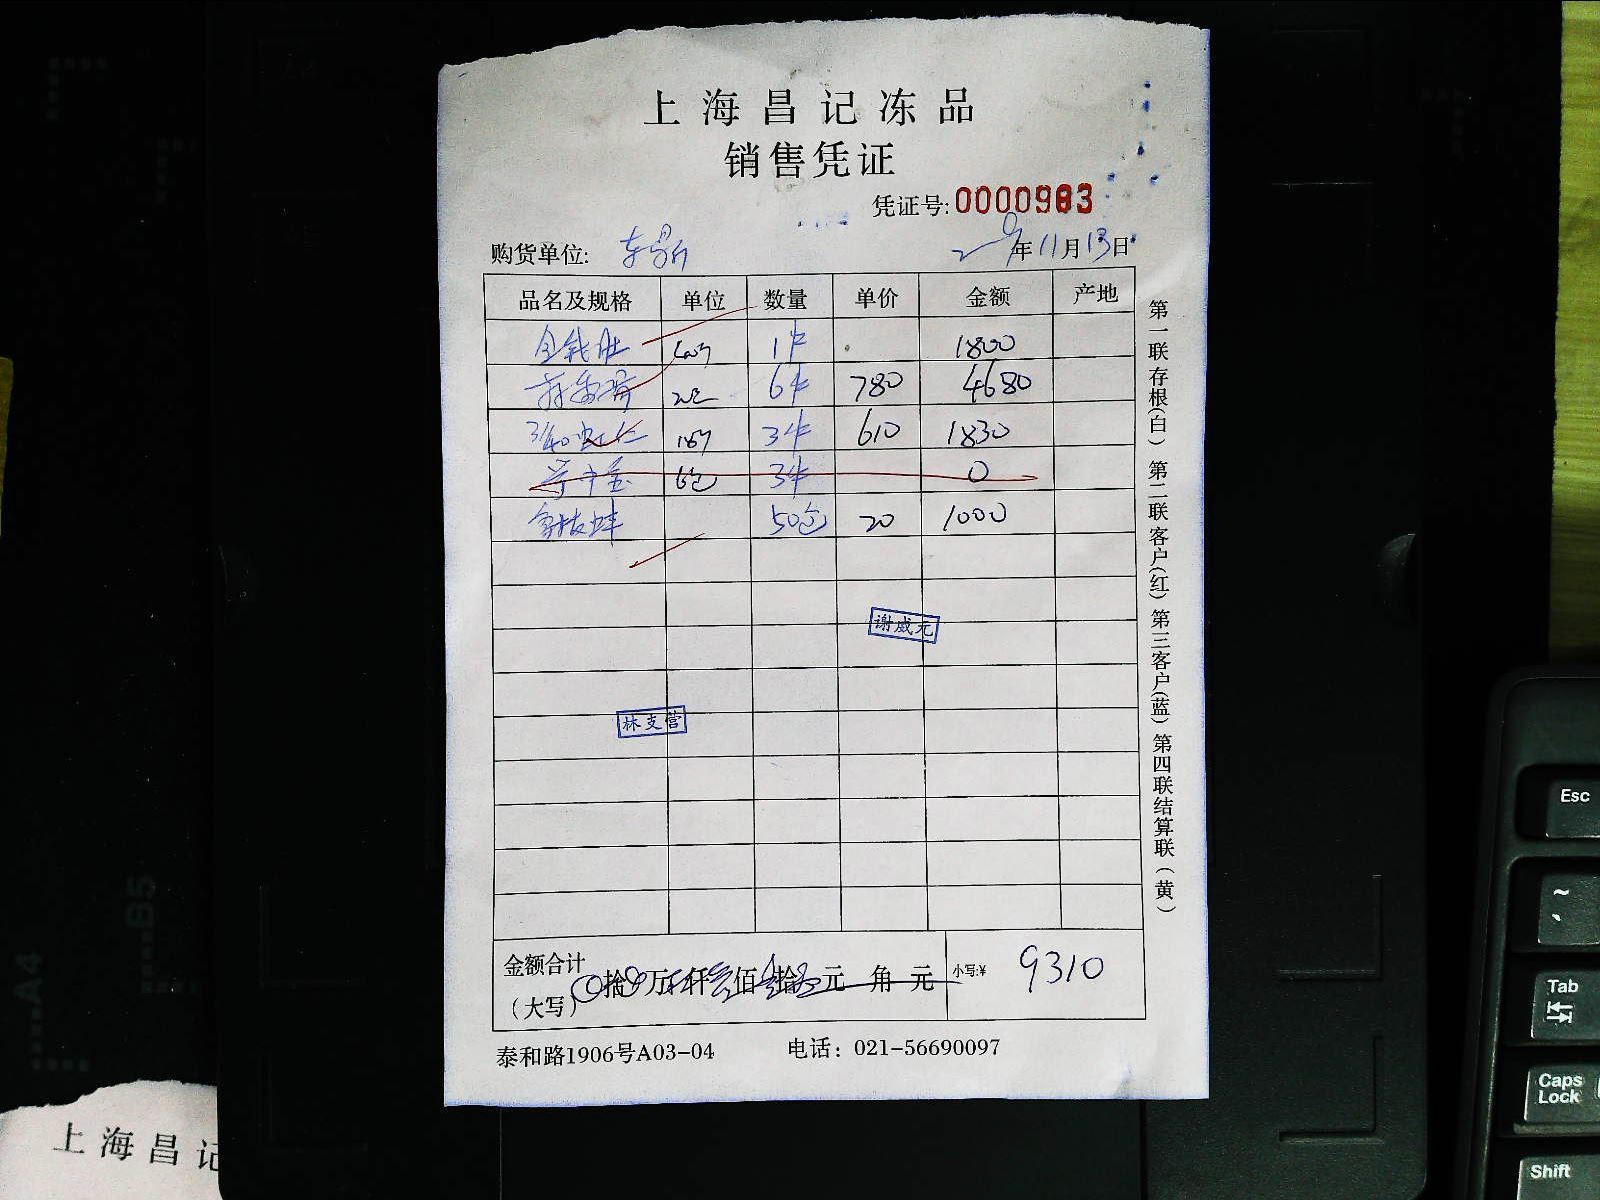 上海昌记冻品
销售凭证
凭证号:0000983
购货单位:
年11月13日
品名及规格 单位 数量 单价 金额 产地
金钱肚 1件 1800
6件 780 4680
3/40虾仁 3件 610 1830
6包 3件 0
象拔蚌 50包 20 1000
谢威元
林支营
金额合计
（大写）
拾万仟佰拾元角元
小写:¥ 9310
泰和路1906号A03-04 电话：021-56690097
第一联存根(白)第二联客户(红)第三客户(蓝)第四联结算联(黄)
A4
B5
上海昌记
Esc
~
Tab
Caps Lock
Shift